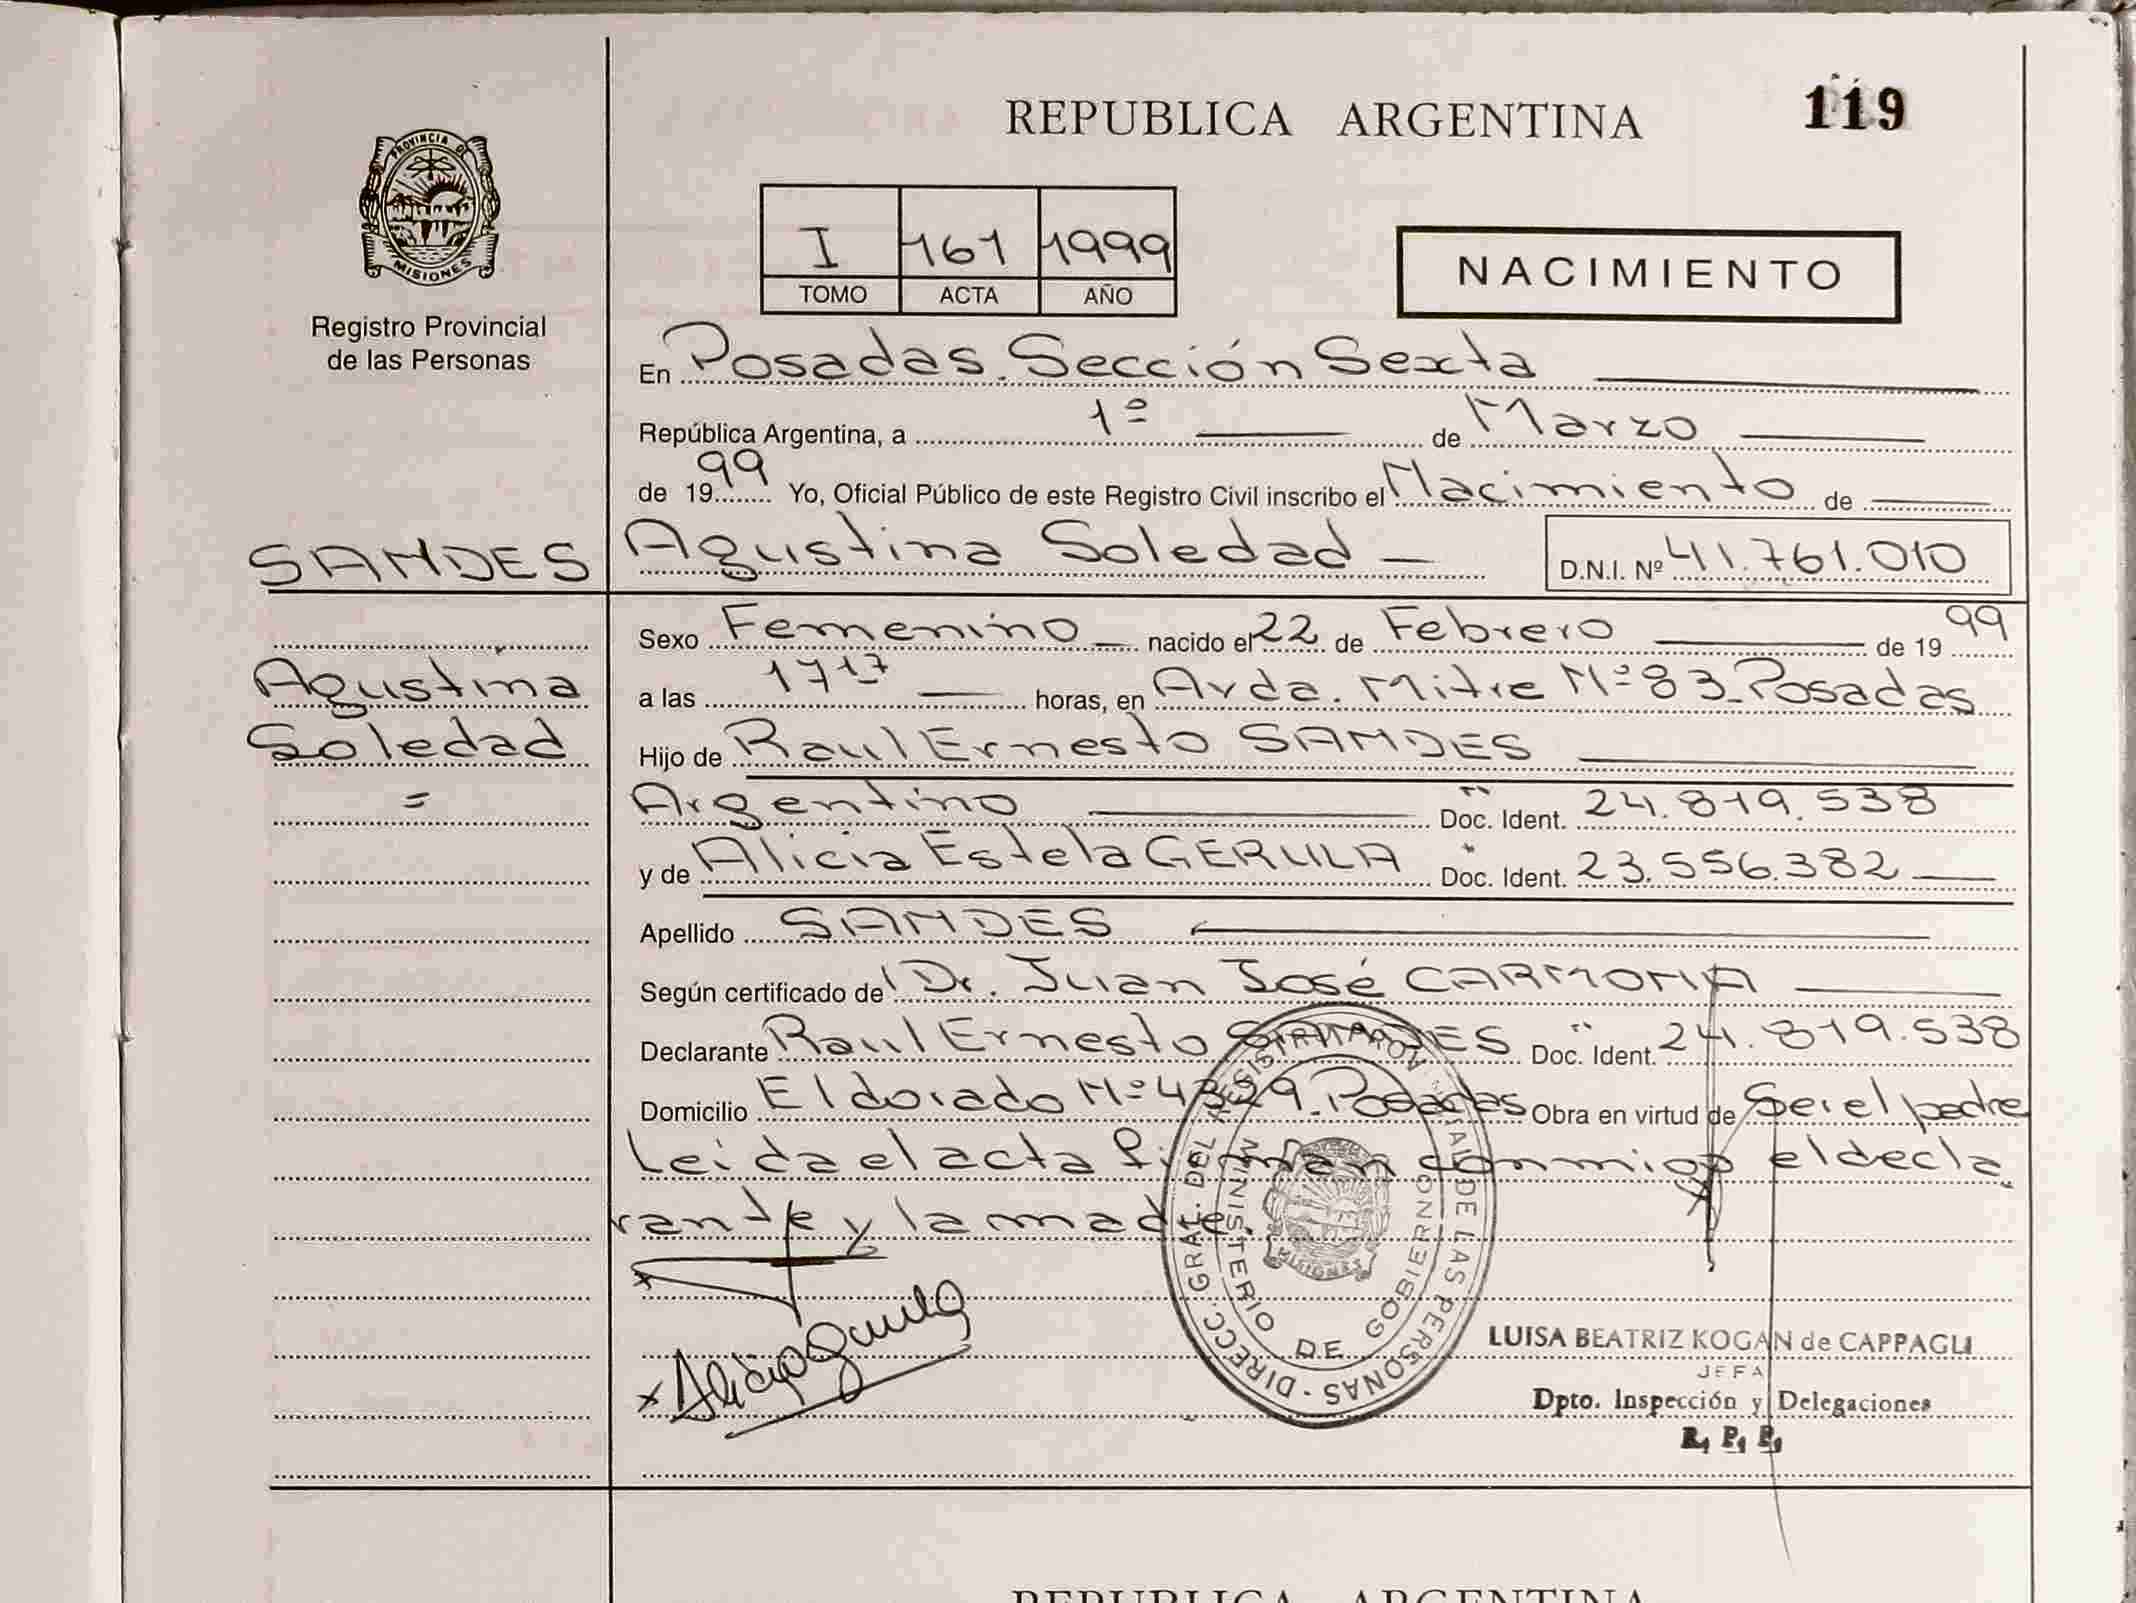 REPUBLICA ARGENTINA
119
PROVINCIA DE
MISIONES
Registro Provincial
de las Personas
I 161 1999
TOMO ACTA AÑO
NACIMIENTO
En Posadas. Sección Sexta
República Argentina, a 1º de Marzo
de 1999 Yo, Oficial Público de este Registro Civil inscribo el Nacimiento de
SANDES Agustina Soledad D.N.I. Nº 41.761.010
Sexo Femenino nacido el 22 de Febrero de 1999
Agustina
Soledad
=
a las 17 17 horas, en Avda. Mitre Nº 83 Posadas
Hijo de Raul Ernesto SANDES
Argentino Doc. Ident. 24.819.538
y de Alicia Estela GERULA Doc. Ident. 23.556.382
Apellido SANDES
Según certificado de l Dr. Juan José CARMONA
Declarante Raul Ernesto SANDES Doc. Ident. 24.819.538
Domicilio Eldorado Nº 4329 Posadas Obra en virtud de Ser el padre
Leida el acta firman conmigo el decla
rante y la madre.
x
x Alicia Gerula
DIRECC. GRAL. DEL REGISTRO PROVINCIAL DE LAS PERSONAS -
MINISTERIO DE GOBIERNO
MISIONES
LUISA BEATRIZ KOGAN de CAPPAGLI
JEFA
Dpto. Inspección y Delegaciones
R. P. P.
REPUBLICA ARGENTINA